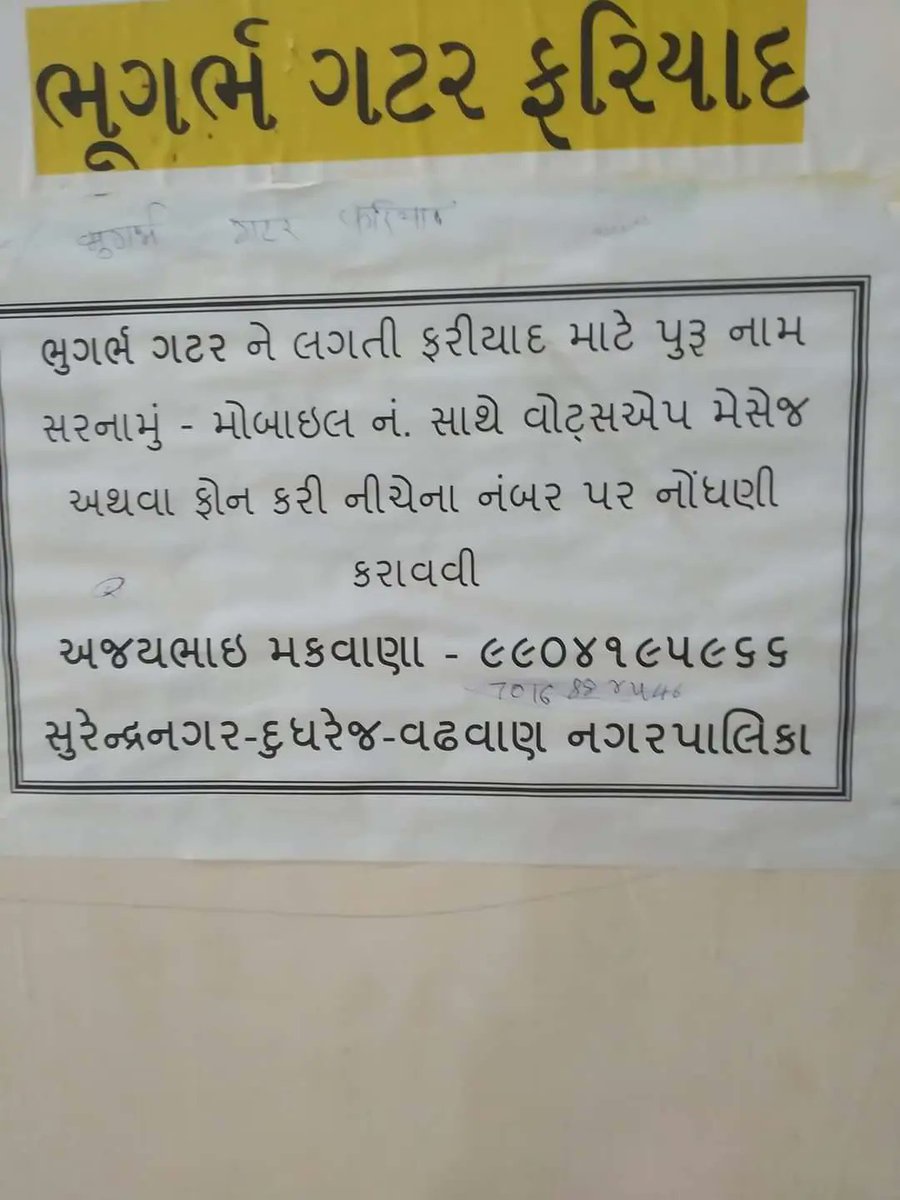 ભૂગર્ભ ગટર ફરિયાદ
ભુગર્ભ ગટર ફરિયાદ
ભુગર્ભ ગટર ને લગતી ફરીયાદ માટે પુરૂ નામ
સરનામું - મોબાઇલ નં. સાથે વોટ્સએપ મેસેજ
અથવા ફોન કરી નીચેના નંબર પર નોંધણી
કરાવવી
અજયભાઇ મકવાણા - ૯૯૦૪૧૯૫૯૬૬
સુરેન્દ્રનગર-દુધરેજ-વઢવાણ નગરપાલિકા